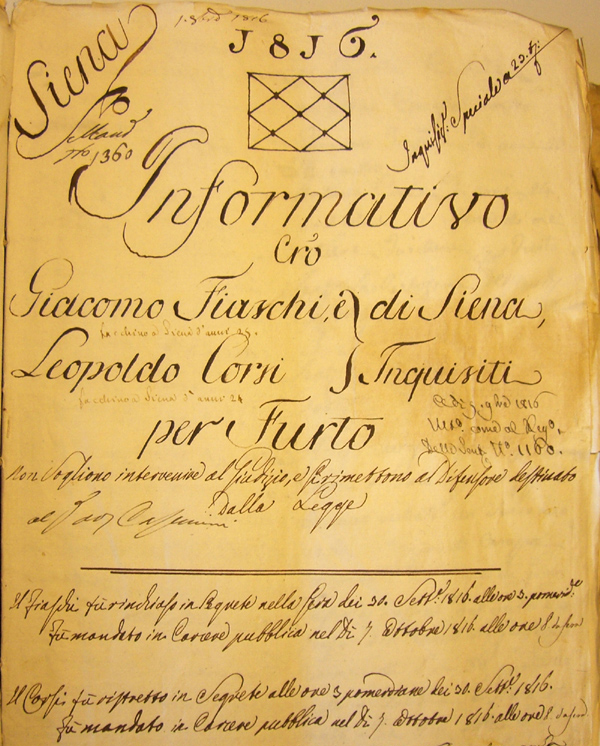 1816
1816.
Siena
Inquisiz. Speciale a 23. t.
N.º 1360
Informativo
Crò
Giacomo Fiaschi, e } di Siena,
facchino a Siena d'anni 25.
Leopoldo Corsi } Inquisiti
facchino a Siena d'anni 24
per Furto
A dì 5. 9bre 1816
come al Rego.
Nº. 1160.
Non Vogliono intervenire al Giudizio, e si rimettono al Difensore destinato
Dalla Legge
al
Il Fiaschi fù rinchiuso in Segrete nella Sera dei 30. Settre. 1816. alle ore 3. pomerid.e
fù mandato in Carcere pubblica nel Dì 7. Ottobre 1816. alle ore 8 da sera
Il Corsi fù ristretto in Segrete alle ore 3 pomeridiane dei 30. Settre. 1816.
fù mandato in Carcere pubblica nel dì 7. Ottobre 1816. alle ore 8 da sera